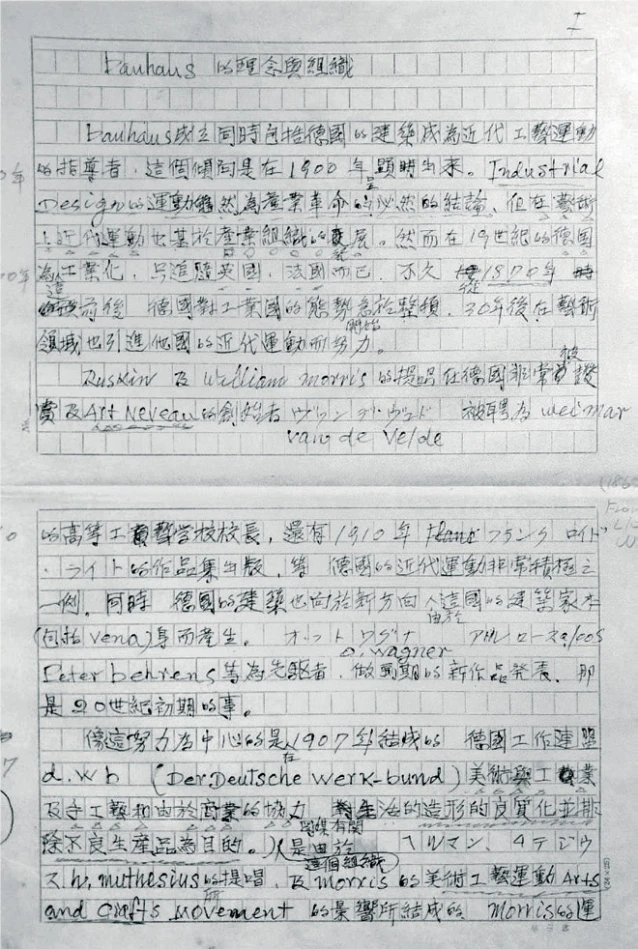 I
bauhaus 的理念與組織
bauhaus成立同時包括德國的建築成為近代工藝運動
的指導者，這個傾向是在1900年顯明出來。Industrial
Design的運動雖然為產業革命的必然的結論，但在藝術
上近代運動也基於產業組織的發展。然而在19世紀的德國
為工業化，只追隨英國，法國而已，不久 從1870年
前後 德國對工業國的態勢 於整頓，30年後在藝術
開始
領域也引進他國的近代運動而努力。
Ruskin 及 William Morris 的提唱在德國非常被讚
賞及Art Neveau的創始者 ヴァンデヴェルド 被聘為 weimar
van de velde
的高等工藝学校校長，還有1910年 フランク ロイド
・ライト的作品集出版，等 德國的近代運動非常積極之
一例。同時 德國的建築也向於新方向 這國的建築家本
由於
(包括 vena)身而產生。オットワグナ アドルロース a, loos
O. wagner
Peter behrens 等為先驅者，做 期的新作品発表，那
是20世紀初期的事。
像這努力為中心的是1907年結成的 德國工作連盟
在
d. w b (Der Deutsche werk-bund) 美術與工業
及手工藝和由於商業的協力 對生活的造形的良質化並排
除不良生產品為目的。) 是由於 ヘルマン、ムテジウ
有関
這個組織
ス h, muthesius 的提唱，及 morris 的美術工藝運動 Arts
and Crafts Movement 的影響所結成的 Morris的運